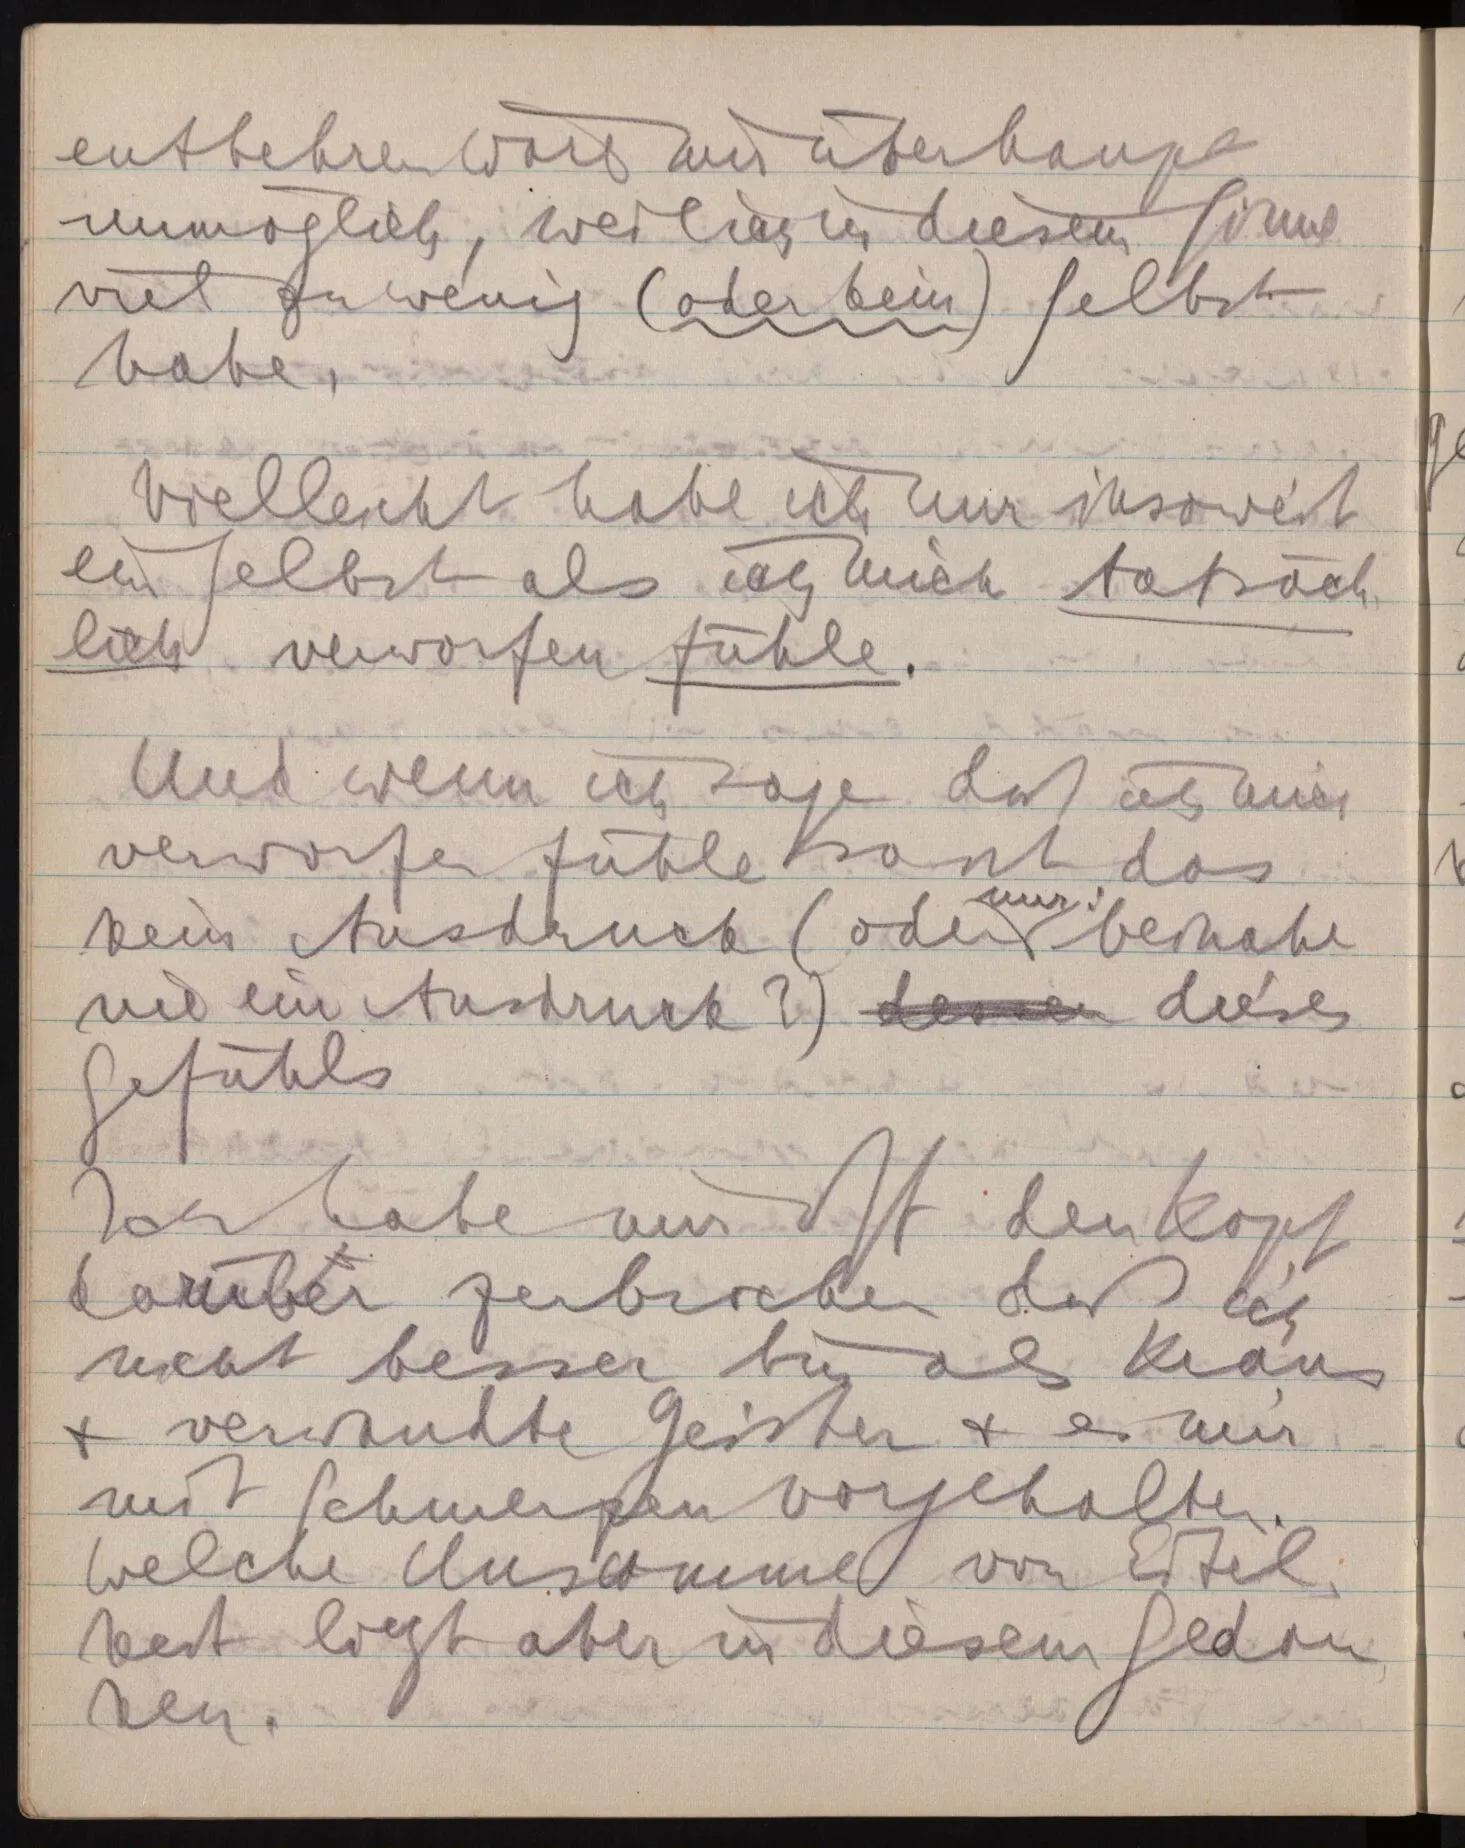 entbehren wäre mir überhaupt
unmöglich, weil ich in diesem Sinne
viel zu wenig (oder kein) Selbst
habe.
Vielleicht habe ich nur insoweit
ein Selbst als ich mich tatsäch
lich verworfen fühle.
Und wenn ich sage daß ich mich
verworfen fühle so ist das
kein Ausdruck (oder nur: beinahe
nie ein Ausdruck?) dieses
Gefühls
Ich habe mir oft den Kopf
darüber zerbrochen daß ich
nicht besser bin als Kraus
+ verwandte Geister + es mir
mit Schmerzen vorgehalten.
Welche Unsumme von Eitel
keit liegt aber in diesem Gedan
ken.